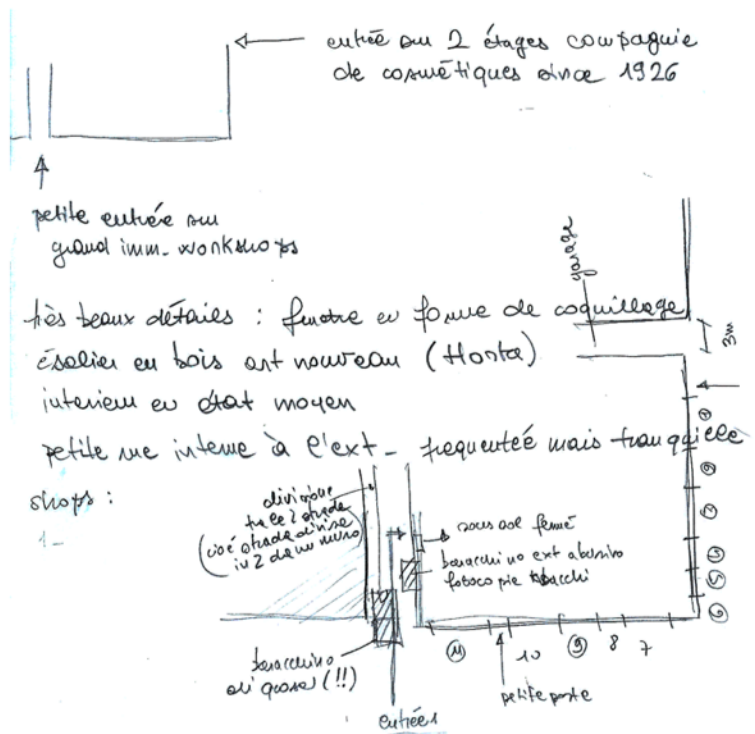 entrée sur 2 étages compagnie
de cosmétiques since 1926
petite entrée sur
grand imm. workshops
garage
3m
très beaux détailes : fenetre en forme de coquillage
esalier en bois art nouveau (Horta)
interieur en état moyen
petite rue interne à l'ext - frequenteé mais tranquille
shops :
1-
divisione
tra le 2 strade
(cioè strada divisa
in 2 da un muro)
sous sol fermé
baracchino ext abusivo
fotocopie tabacchi
baracchino
(!!)
entrées
petite porte
11
10
9
8
7
6
5
4
3
2
1